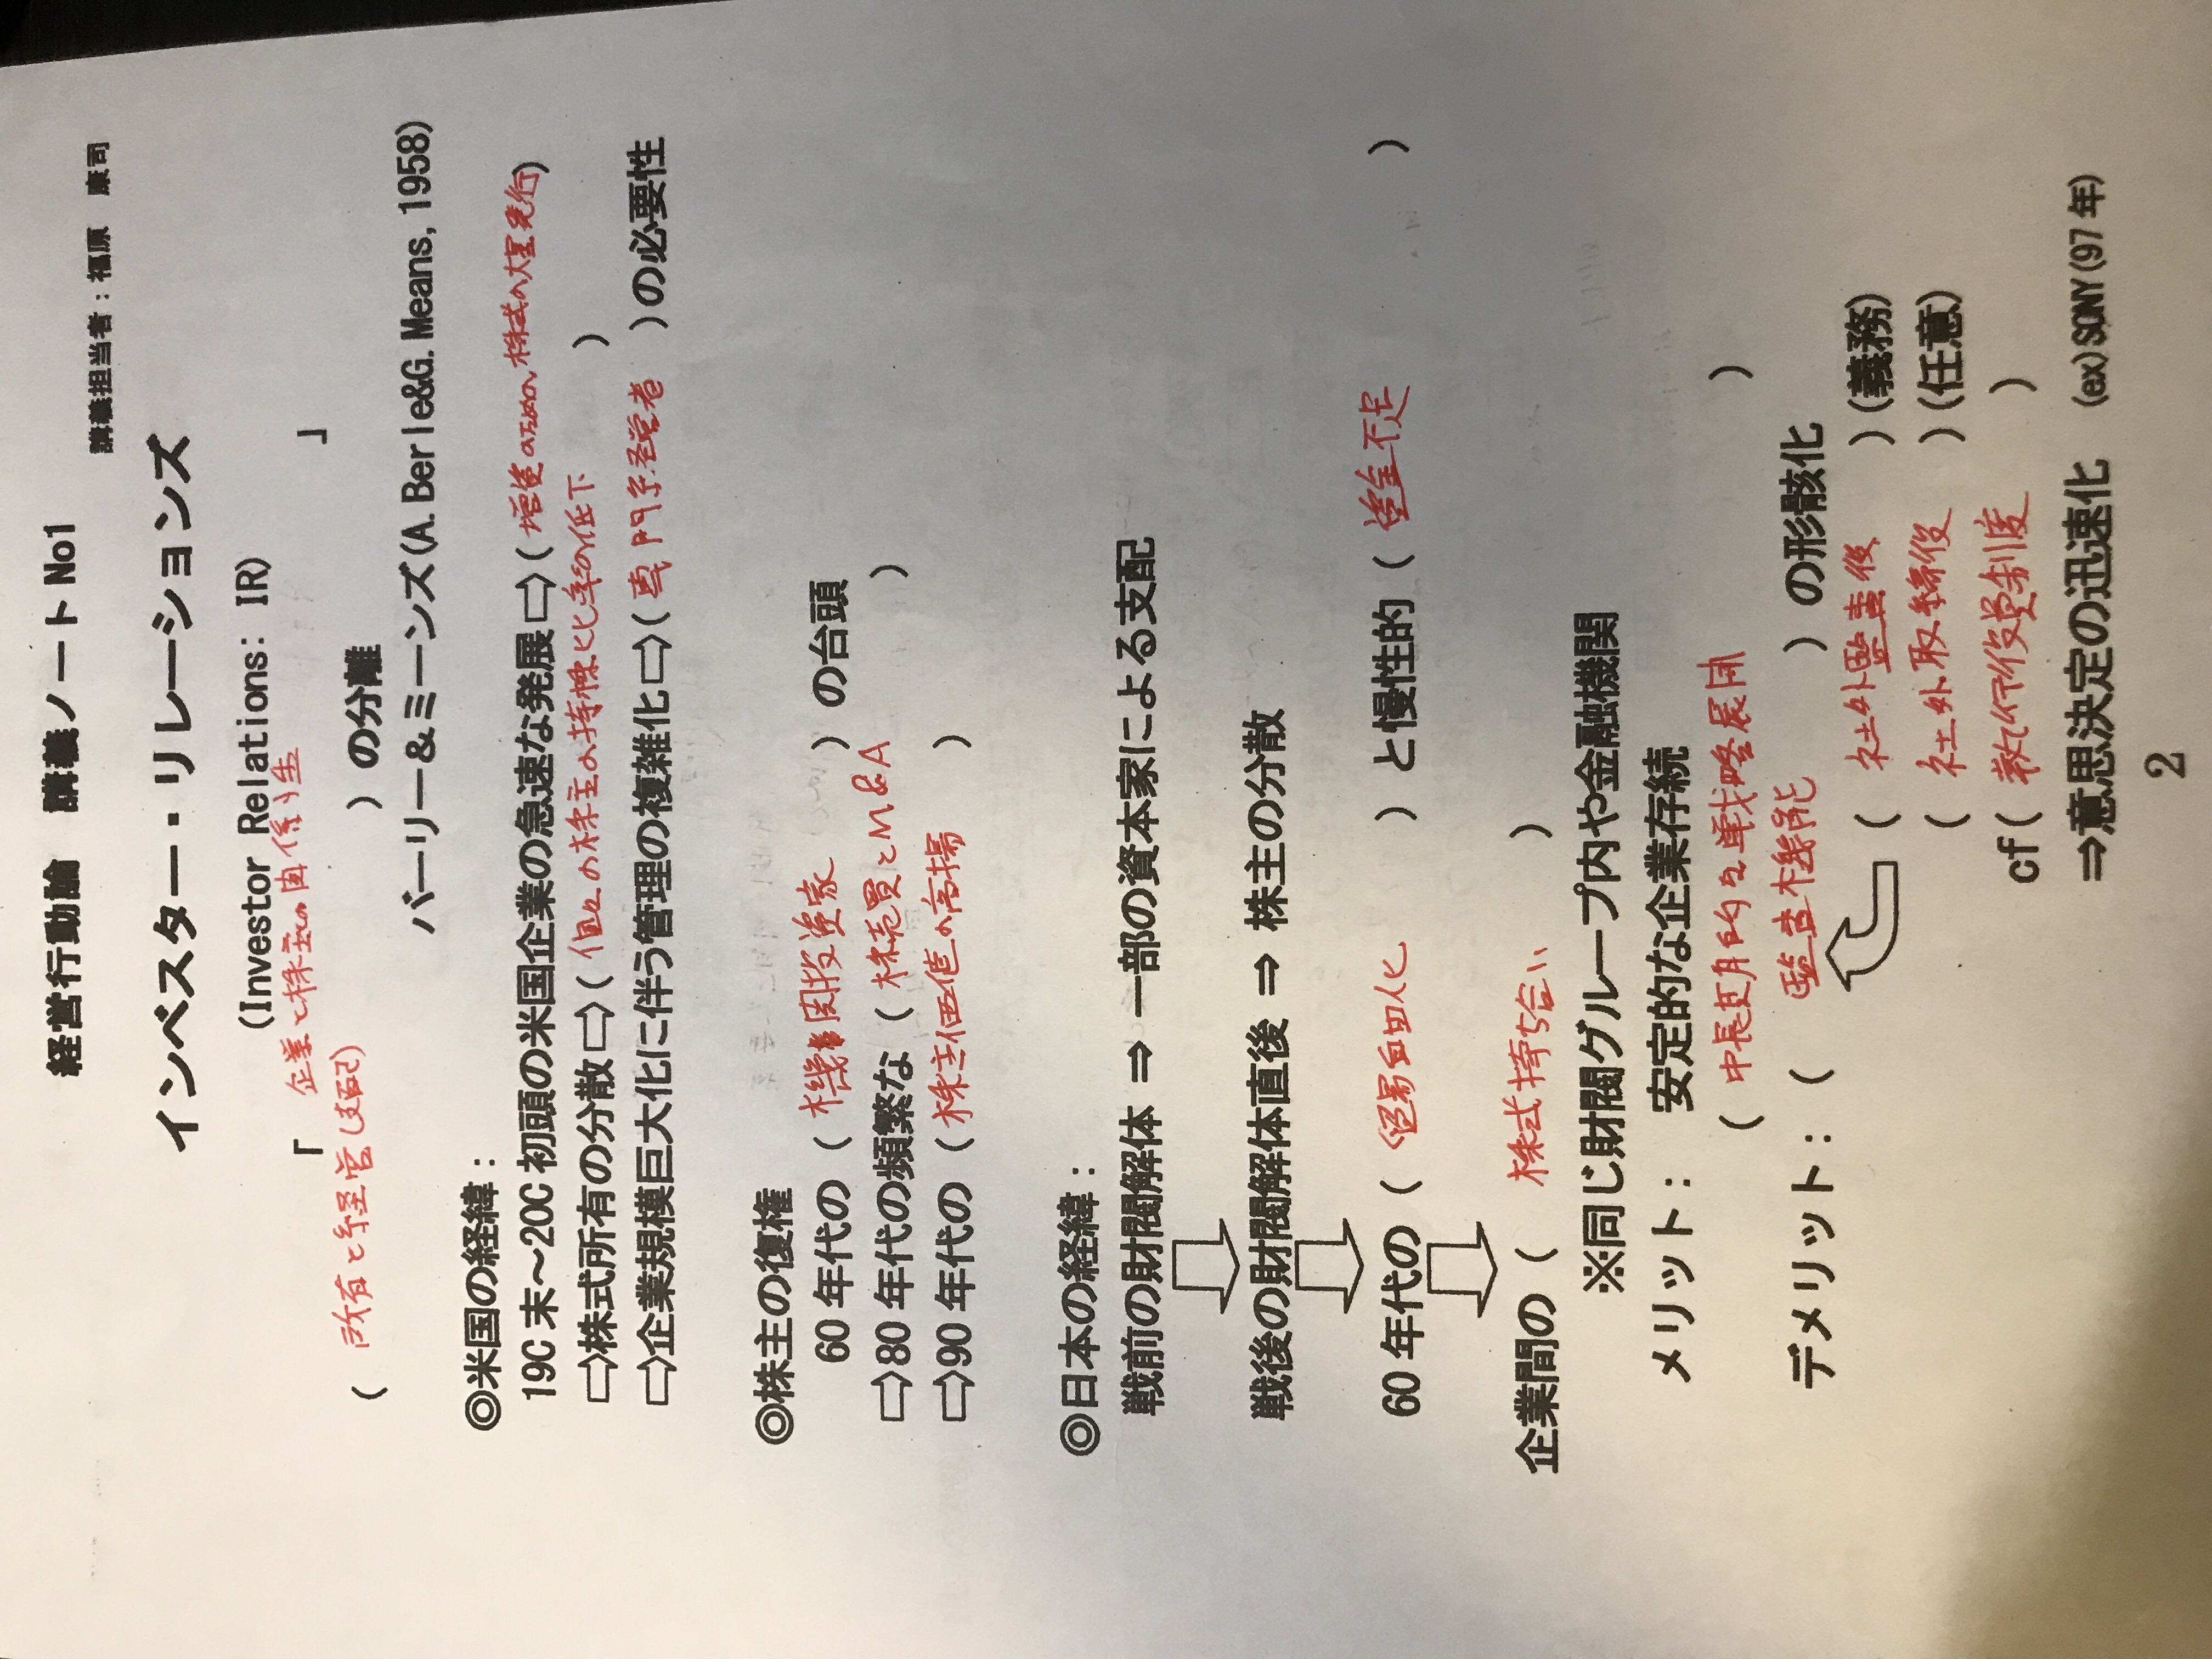 経営行動論　講義ノート No1
講義担当者：福原　康司
インベスター・リレーションズ
(Investor Relations: IR)
「 企業と株主との関係性 」
( 所有と経営(支配) ) の分離
バーリー＆ミーンズ(A.Berle&G.Means, 1958)
◎米国の経緯：
19C 末～20C 初頭の米国企業の急速な発展⇨( 増資のための株式の大量発行)
⇨株式所有の分散⇨( 個々の株主の持株比率の低下 )
⇨企業規模巨大化に伴う管理の複雑化⇨( 専門経営者 )の必要性
◎株主の復権
60 年代の ( 機関投資家 ) の台頭
⇨80 年代の頻繁な ( 株売買とM&A )
⇨90 年代の ( 株主価値の高揚 )
◎日本の経緯：
戦前の財閥解体 ⇒ 一部の資本家による支配
戦後の財閥解体直後 ⇒ 株主の分散
60 年代の ( 貿易自由化 ) と慢性的 ( 資金不足 )
企業間の ( 株式持ち合い )
※同じ財閥グループ内や金融機関
メリット：　安定的な企業存続
( 中長期的な戦略展開 )
デメリット：( 監査機能 ) の形骸化
( 社外監査役 )(義務)
( 社外取締役 )(任意)
cf( 執行役員制度 )
⇒意思決定の迅速化　(ex)SONY(97 年)
2